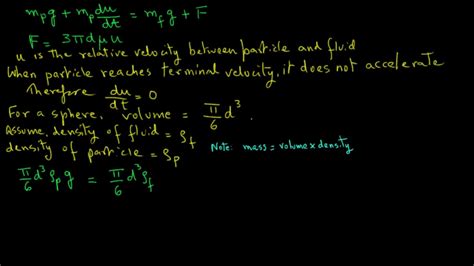 m_p g + m_p du/dt = m_f g + F
F = 3πdμu
u is the relative velocity between particle and fluid
When particle reaches terminal velocity, it does not accelerate
Therefore du/dt = 0
For a sphere, volume = π/6 d³.
Assume, density of fluid = ρ_f
density of particle = ρ_p
Note: mass = volume × density
π/6 d³ ρ_p g = π/6 d³ ρ_f